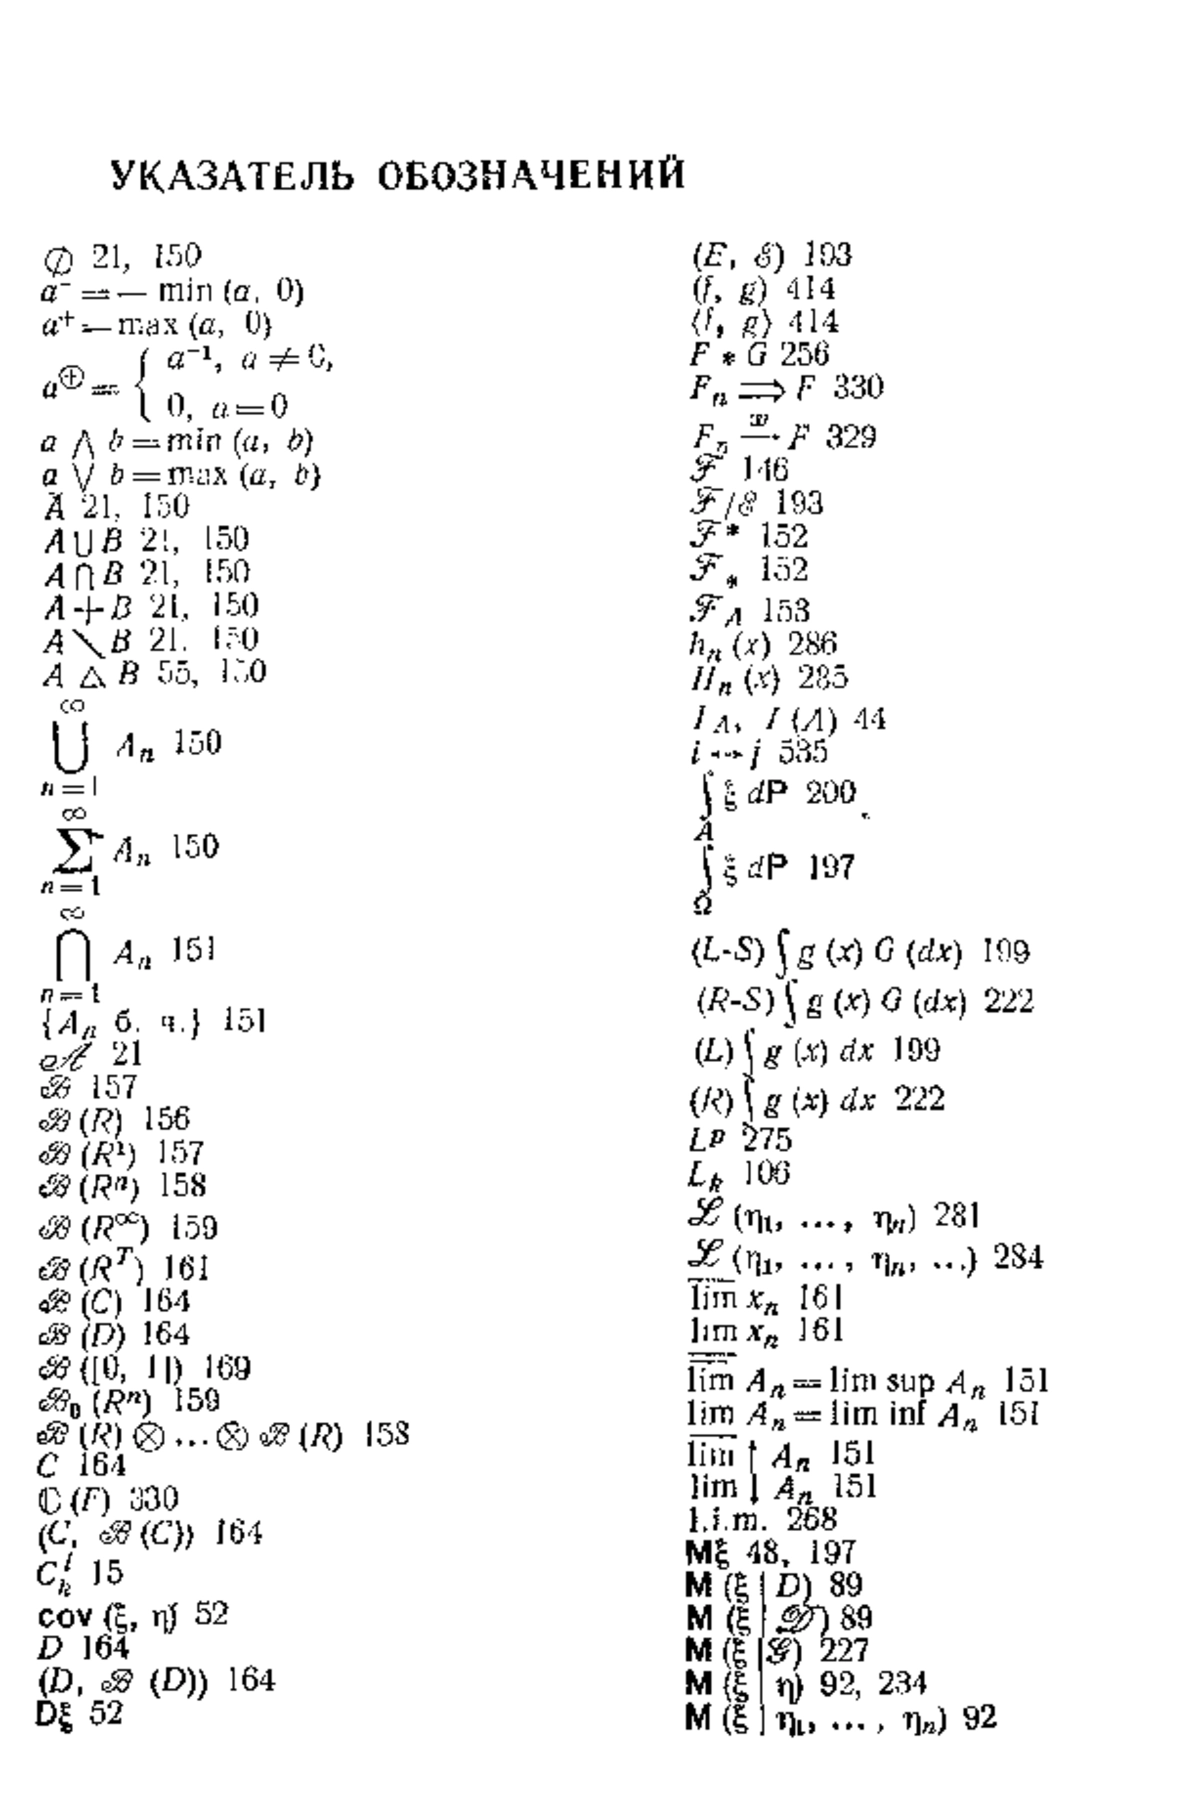 УКАЗАТЕЛЬ ОБОЗНАЧЕНИЙ
∅ 21, 150
a⁻ = — min (a, 0)
a⁺ = max (a, 0)
a^⊕ = { a⁻¹, a ≠ 0,
0, a = 0
a ∧ b = min (a, b)
a ∨ b = max (a, b)
Ā 21, 150
A ∪ B 21, 150
A ∩ B 21, 150
A + B 21, 150
A \ B 21, 150
A △ B 55, 150
∞
⋃ Aₙ 150
n = 1
∞
∑ Aₙ 150
n = 1
∞
⋂ Aₙ 151
n = 1
{Aₙ б. ч.} 151
𝒜 21
ℬ 157
ℬ (R) 156
ℬ (R¹) 157
ℬ (Rⁿ) 158
ℬ (R^∞) 159
ℬ (R^T) 161
ℬ (C) 164
ℬ (D) 164
ℬ ([0, 1]) 169
ℬ₀ (Rⁿ) 159
ℬ (R) ⊗ ... ⊗ ℬ (R) 158
C 164
ℂ (F) 330
(C, ℬ (C)) 164
C_k^l 15
cov (ξ, η) 52
D 164
(D, ℬ (D)) 164
Dξ 52
(E, ℰ) 193
(f, g) 414
⟨f, g⟩ 414
F * G 256
Fₙ ⟹ F 330
Fₙ →^w F 329
ℱ 146
ℱ/ℰ 193
ℱ* 152
ℱ_* 152
ℱ_A 153
hₙ (x) 286
Hₙ (x) 285
I_A, I (A) 44
i ↔ j 535
∫ ξ dP 200
A
∫ ξ dP 197
Ω
(L-S) ∫ g (x) G (dx) 199
(R-S) ∫ g (x) G (dx) 222
(L) ∫ g (x) dx 199
(R) ∫ g (x) dx 222
L^p 275
L_k 106
ℒ (η₁, ..., ηₙ) 281
ℒ (η₁, ..., ηₙ, ...) 284
l̅i̅m̅ xₙ 161
l̲i̲m̲ xₙ 161
l̅i̅m̅ Aₙ = lim sup Aₙ 151
l̲i̲m̲ Aₙ = lim inf Aₙ 151
lim ↑ Aₙ 151
lim ↓ Aₙ 151
l.i.m. 268
Mξ 48, 197
M (ξ | D) 89
M (ξ | 𝒟) 89
M (ξ | 𝒢) 227
M (ξ | η) 92, 234
M (ξ | η₁, ..., ηₙ) 92